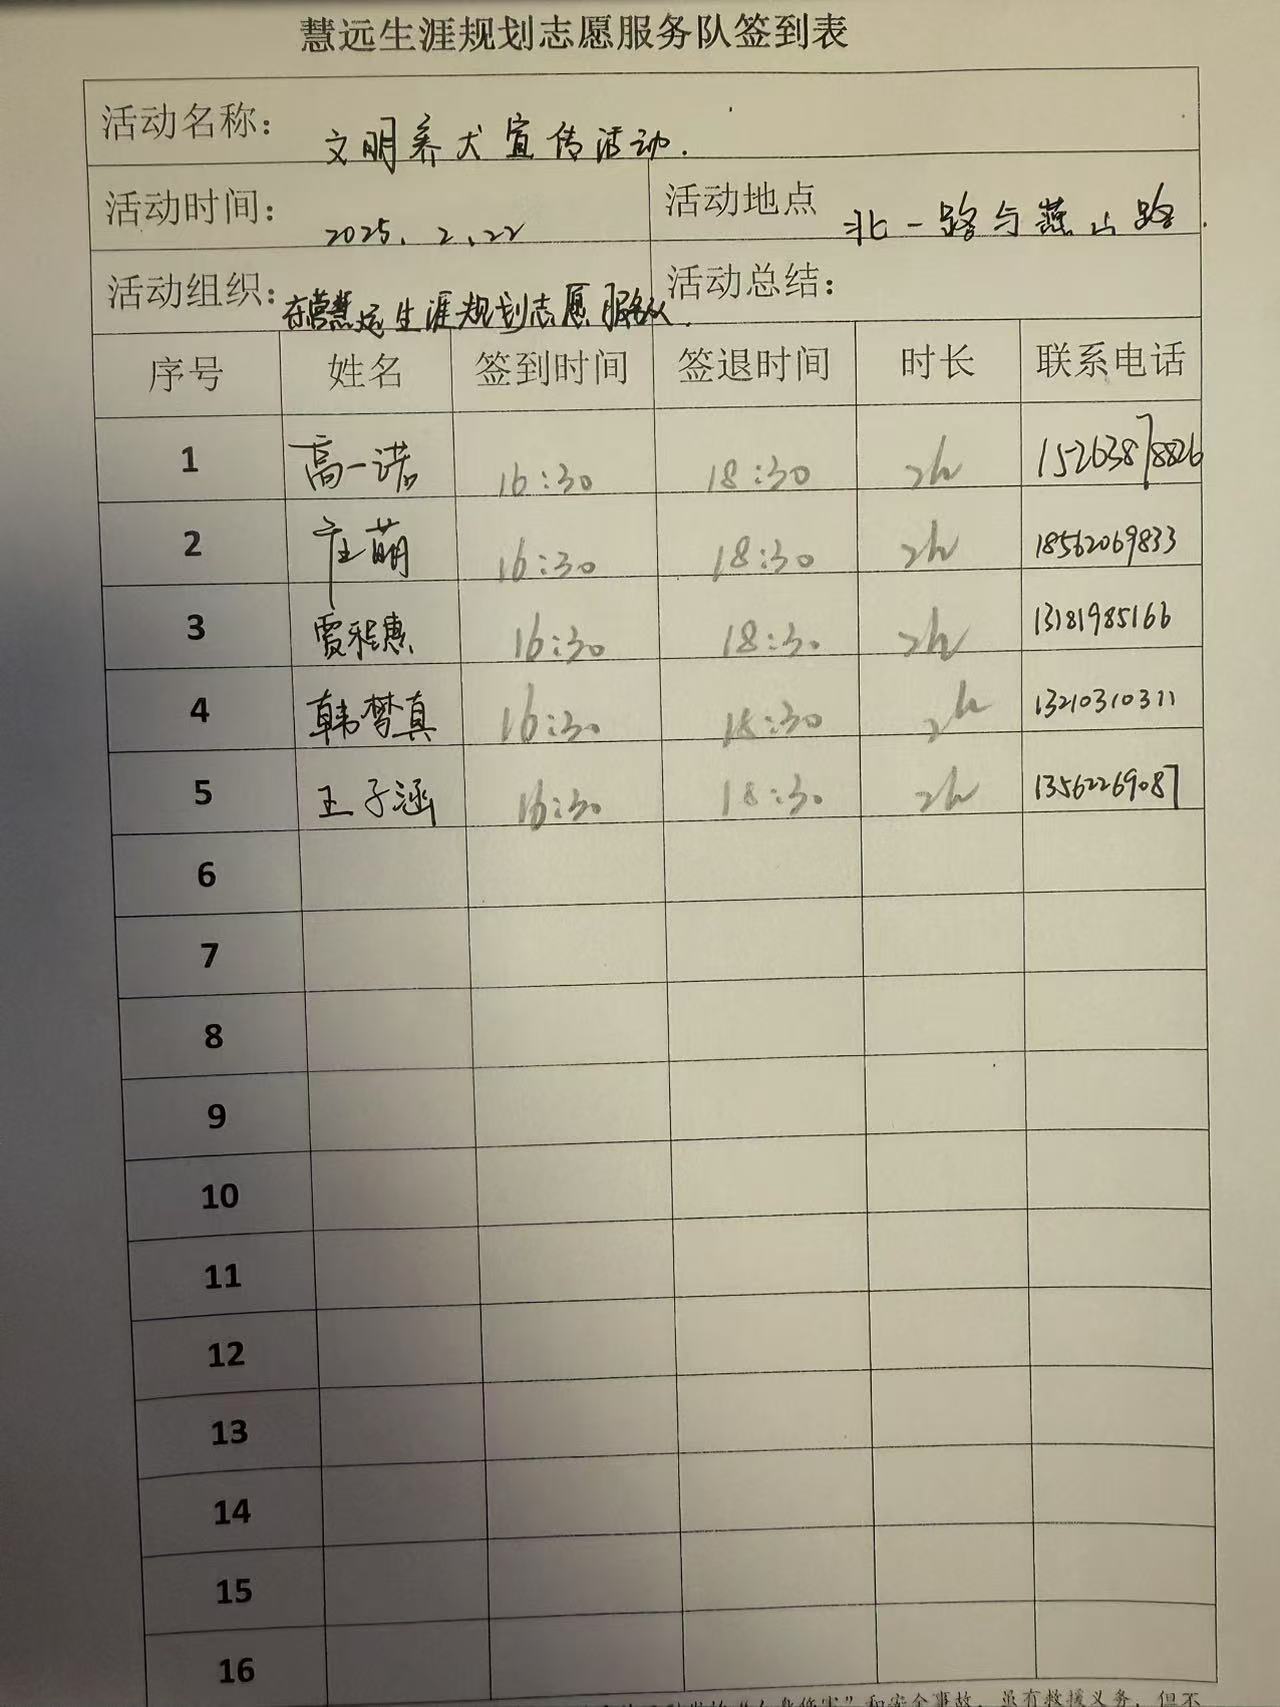 慧远生涯规划志愿服务队签到表
活动名称： 文明养犬宣传活动.
活动时间： 2025、2、22 活动地点 北一路与燕山路.
活动组织：东营慧远生涯规划志愿服务队. 活动总结：
序号 姓名 签到时间 签退时间 时长 联系电话
1 高一诺 16:30 18:30 2h 15263878826
2 庄萌 16:30 18:30 2h 18562069833
3 贾雅惠 16:30 18:30 2h 13181985166
4 韩梦真 16:30 18:30 2h 13210310311
5 王子涵 16:30 18:30 2h 13562269087
6
7
8
9
10
11
12
13
14
15
16
“人身伤害”和安全事故，虽有救援义务，但不